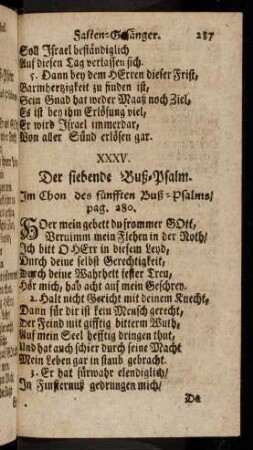 Fasten-Gesänger. 287
Soll Israel beständiglich
Auf diesen Tag verlassen sich.
5. Dann bey dem HErren dieser Frist,
Barmhertzigkeit zu finden ist,
Sein Gnad hat weder Maaß noch Ziel,
Es ist bey ihm Erlösung viel,
Er wird Israel immerdar,
Von aller Sünd erlösen gar.
XXXV.
Der siebende Buß-Psalm.
Im Thon des fünfften Buß-Psalms/
pag. 280.
HOer mein gebett du frommer GOtt,
Vernimm mein Flehen in der Noth/
Ich bitt O HErr in diesem Leyd,
Durch deine selbst Gerechtigkeit,
Durch deine Wahrheit fester Treu,
Hör mich, hab acht auf mein Geschrey.
2. Halt nicht Gericht mit deinem Knecht,
Dann für dir ist kein Mensch gerecht,
Der Feind mit gifftig bitterm Wuth,
Auf mein Seel hefftig dringen thut,
Und hat auch schier durch seine Macht
Mein Leben gar in staub gebracht.
3. Er hat fürwahr elendiglich/
In Finsternuß gedrungen mich/
Da